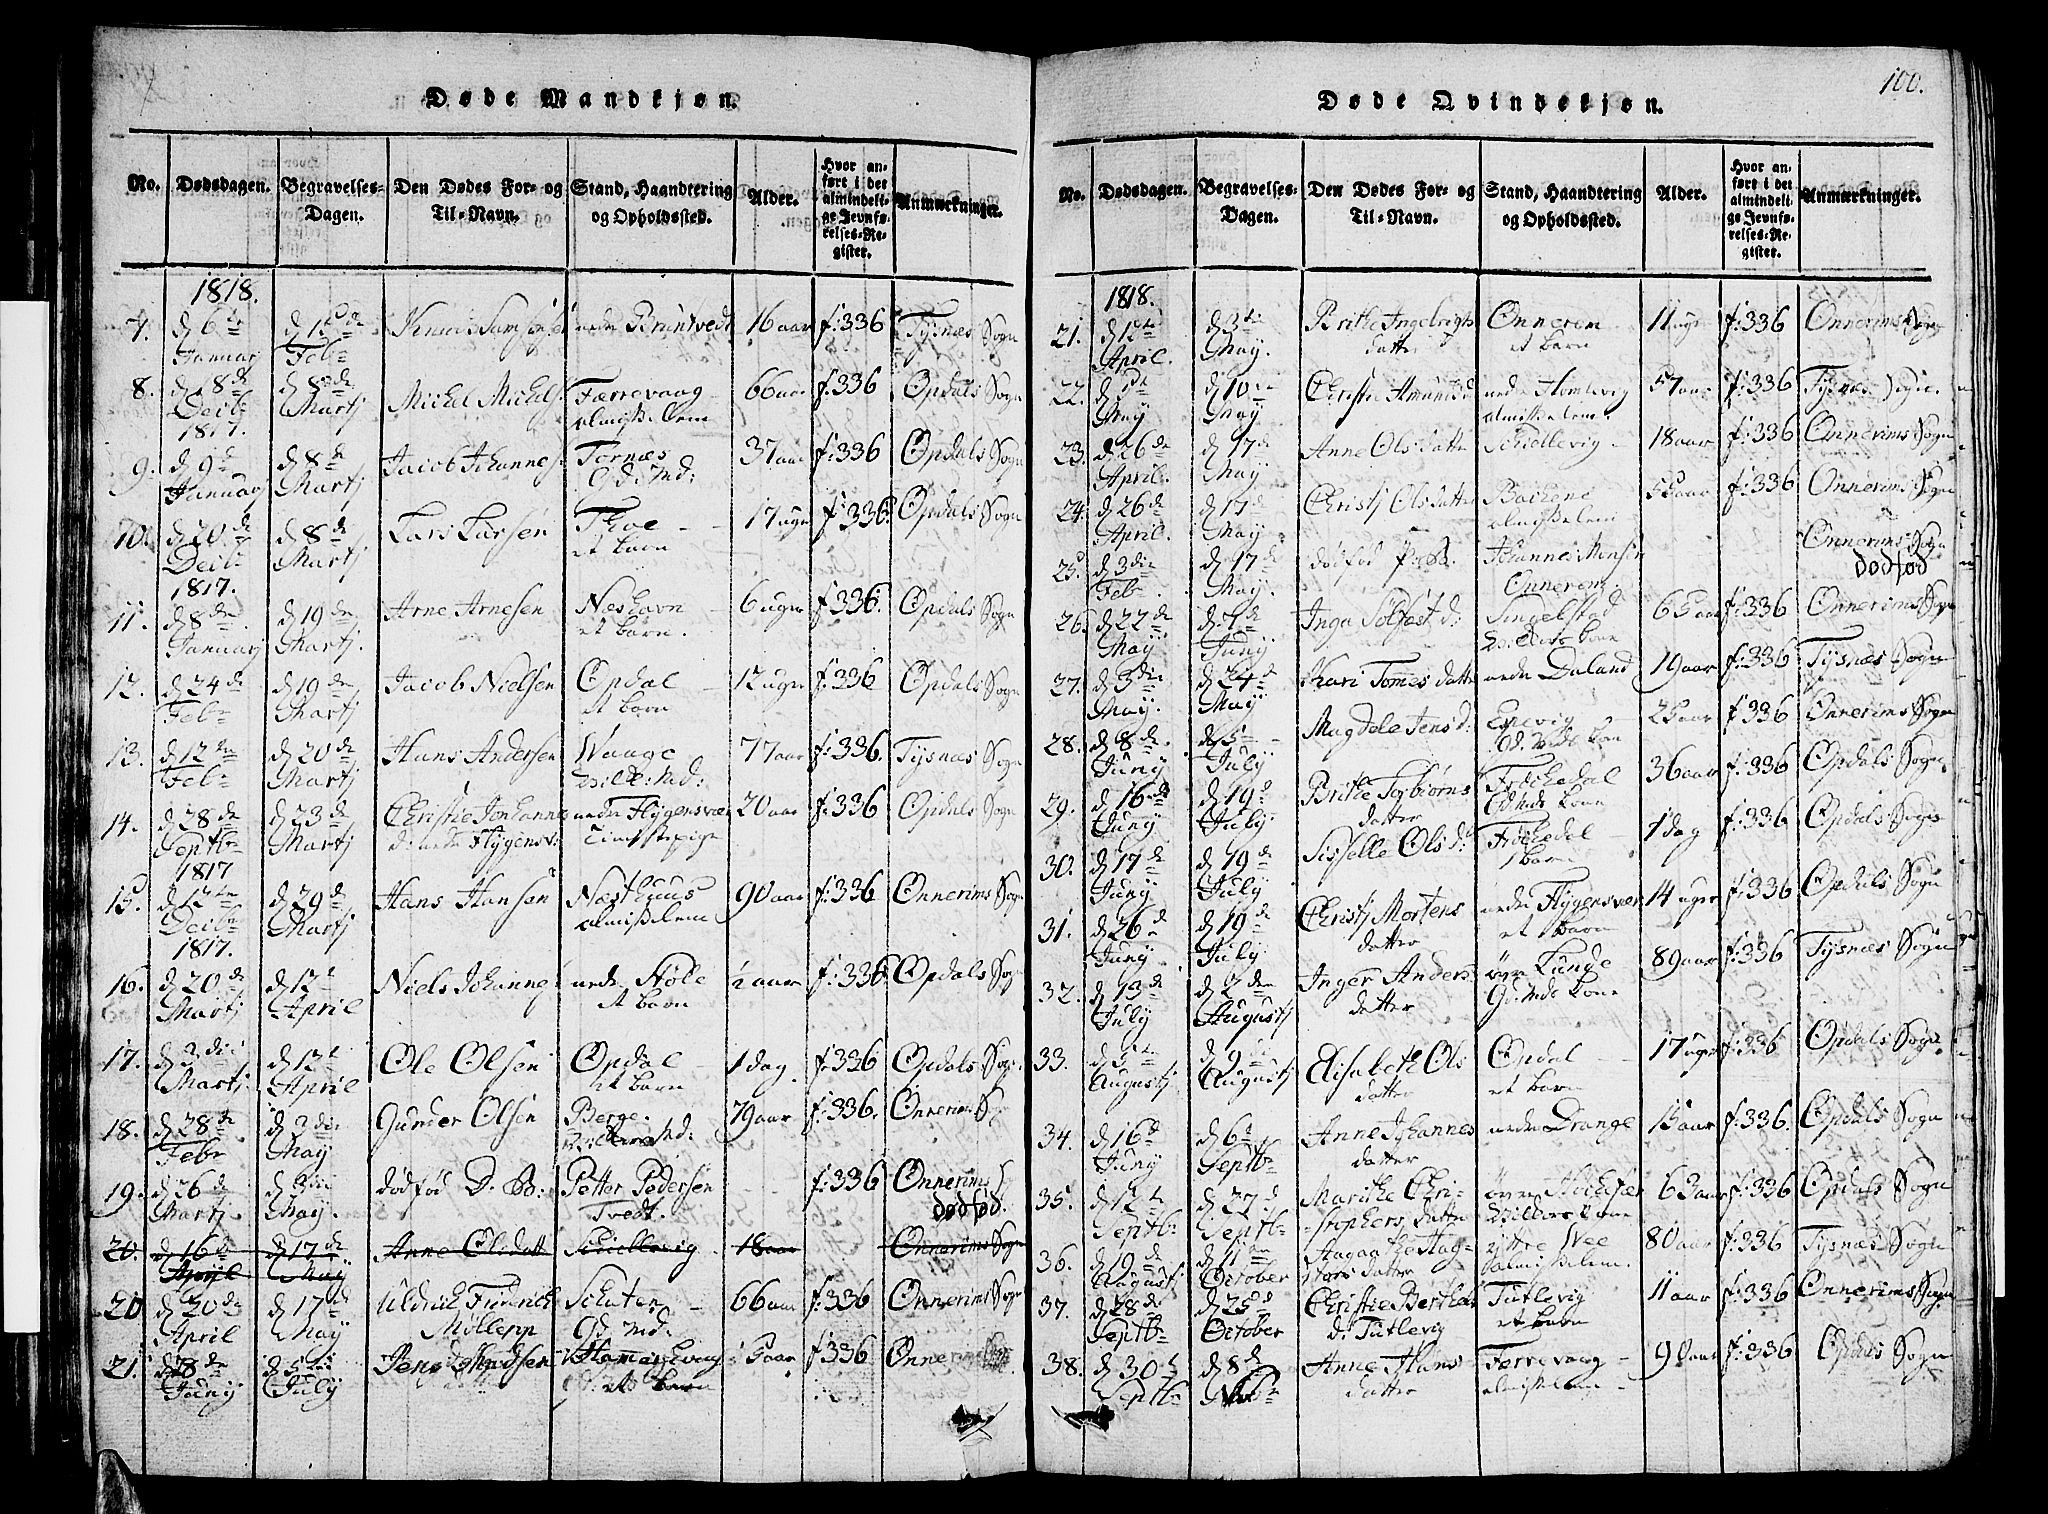 Døde Mandkjøn.
No. Dødsdagen. Begravelses-Dagen. Den Dødes For- og Til-Navn. Stand, Haandtering og Opholdssted. Alder. Hvor anført i det almindelige Jevnførelses-Register. Anmærkninger.
1818.
7. d 6te Januarj Febr nedre Bruntvedt 16 aar f:336 Tysnæs Sogn
8. d 18de Decbr 1817. d 8de Martj Michel Michels: Færrevaag almisselem 66 aar f:336 Opdals Sogn
9. d 9d Januarj d 8de Martj Jacob Johannes: Tornæs Gd: Md: 37 aar f:336 Opdals Sogn
10. d 20de Decbr 1817. d 8de Martj Lars Larsen Thoe et barn 17 uger f:336 Opdals Sogn
11. d 8de Januarj d 19de Martj. Arne Arnesen Neshavn et barn. 6 uger f:336. Opdals Sogn
12. d 24de Febr d 19de Martj Jacob Nielsen Opdal et barn 12 uger f:336 Opdals Sogn
13. d 12te Febr d 20de Martj Hans Andersen Waage Md: 77 aar f:336. Tysnæs Sogn
14. d 28de Septbr 1817 d 23de Martj Christie Johannes d: nedre Flygensv: nedre Flygensvær Tienstepige 20 aar f:336 Opdals Sogn
15. d 12te Decbr 1817. d 29de Martj Hans Hansen Næsthuus almisselem 90 aar f:336 Onnerims Sogn
16. d 20de Martj d 12t April Niels Johannes nedre Høle et barn ½ aar f:336. Opdals Sogn
17. d 3die Martj d 12t April Ole Olsen Opdal et barn 1 dag. f:336 Opdals Sogn
18. d 28de Febr d 3die May Gunder Olsen Berge. Md: 79 aar f:336. Onnerims Sogn
19. d 26de Martj d 3die May. dødfød D. B: Petter Pedersen Tvedt. f:336 Onnerims dødfød.
20. d 16de Aprill d 17de May Anne Olsdatt Schiellevig 18 aar Onnerims Sogn
20 d 20de April d 17de May Uldrich Fridrich Møllerup Schater Gd. Md: 66 aar f:336 Onnerims Sogn
21. d 28de Junij d 5te July Jens Knudsen et barn 5 aar f:336 Onnerims
100.
Døde Qvindekjøn.
No. Dødsdagen. Begravelses-Dagen. Den Dødes For- og Til-Navn. Stand, Haandtering og Opholdssted. Alder. Hvor anført i det almindelige Jevnførelses-Register. Anmærkninger.
1818.
21. d 12te April. d 3die May. Brithe Ingebrigts datter Onnerem et barn 11 uger f:336 Onnerims Sogn
22. May d 10de May Christie Amundsd nedre Homlevig almisselem. 57 aar f:336 Tysnæs Sogn.
23. d 26de April. d 17de May Anne Olsdatter Schiellevig 18 aar f:336 Onnerims Sogn
24. d 26de April. d 17de May Christj Olsdatter Bachene almisselem 55 aar f:336 Onnerims Sogn
25. d 3die Febr d 17de May. dødfød P: B. Johannes Monsen Onnerem. Onnerims Sogn dødfød
26. d 22de May d 7de Juny Inga Solfest d: Singelstad kone 65 aar f:336 Onnerims Sogn
27. d 3die May. d 24de May Kari Tomes datter nedre Daland 19 aar f:336 Tysnæs Sogn
28. d 8de Juny d 5te July Magdele Jens d: Espevig Gd. Mds kone 25 aar f:336 Onnerims Sogn
29. d 16de Juny d 19d July Brithe Torbiørns datter Frøchedal Gd Mds kone 36 aar f:336 Opdals Sogn
30. d 17de Juny d 19de July Sisselle Ols d: Frøchedal barn 1 dag f:336 Opdals Sogn
31. d 26de Juny d 19de July Christj Mortens datter nedre Flygensvær et barn 14 uger f:336 Opdals Sogn
32. d 13de July d 2den Augustj Inger Anders datter øvre Lunde Gd: Mds kone 89 aar f:336 Tysnæs Sogn
33. d 5te Augustj d 9de Augustj Elisabeth Ols datter Opdal et barn 17 uger f:336 Opdals Sogn
34. d 16d Juny d 6te Septbr Anne Johannes datter nedre Drange 15 aar f:336. Opdals Sogn
35. d 12te Septbr d 27d Septbr Marithe Christophers datter øvre kone 63 aar f:336 Opdals Sogn
36. d 19de Augustj d 11te October Aagaathe datter yttre Wee almisselem. 80 aar f:336 Tysnæs Sogn
37. d 28de Septbr d 25de October Christie Berthels d: Tutlevig Tutlevig et barn 11 aar f:336 Onnerims Sogn
38. d 30t Septbr d 8de Novbr Anne Hans datter Færrevaag almisselem 90 aar f:336 Opdals Sogn